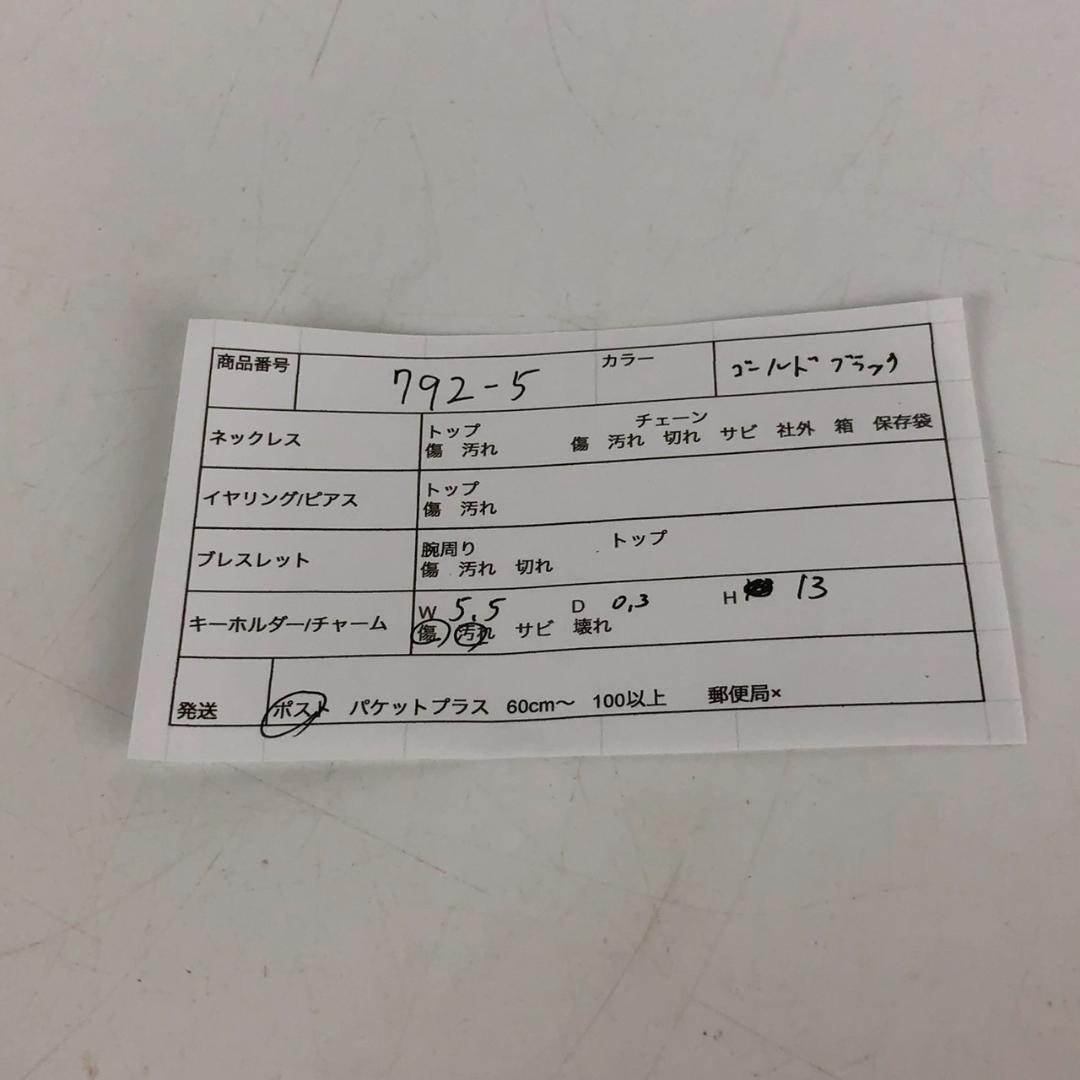 商品番号 792-5 カラー ゴールド ブラック
ネックレス トップ チェーン
傷 汚れ 傷 汚れ 切れ サビ 社外 箱 保存袋
イヤリング/ピアス トップ
傷 汚れ
ブレスレット 腕周り トップ
傷 汚れ 切れ
キーホルダー/チャーム W 5.5 D 0.3 H 13
傷 汚れ サビ 壊れ
発送 ポスト パケットプラス 60cm～ 100以上 郵便局×